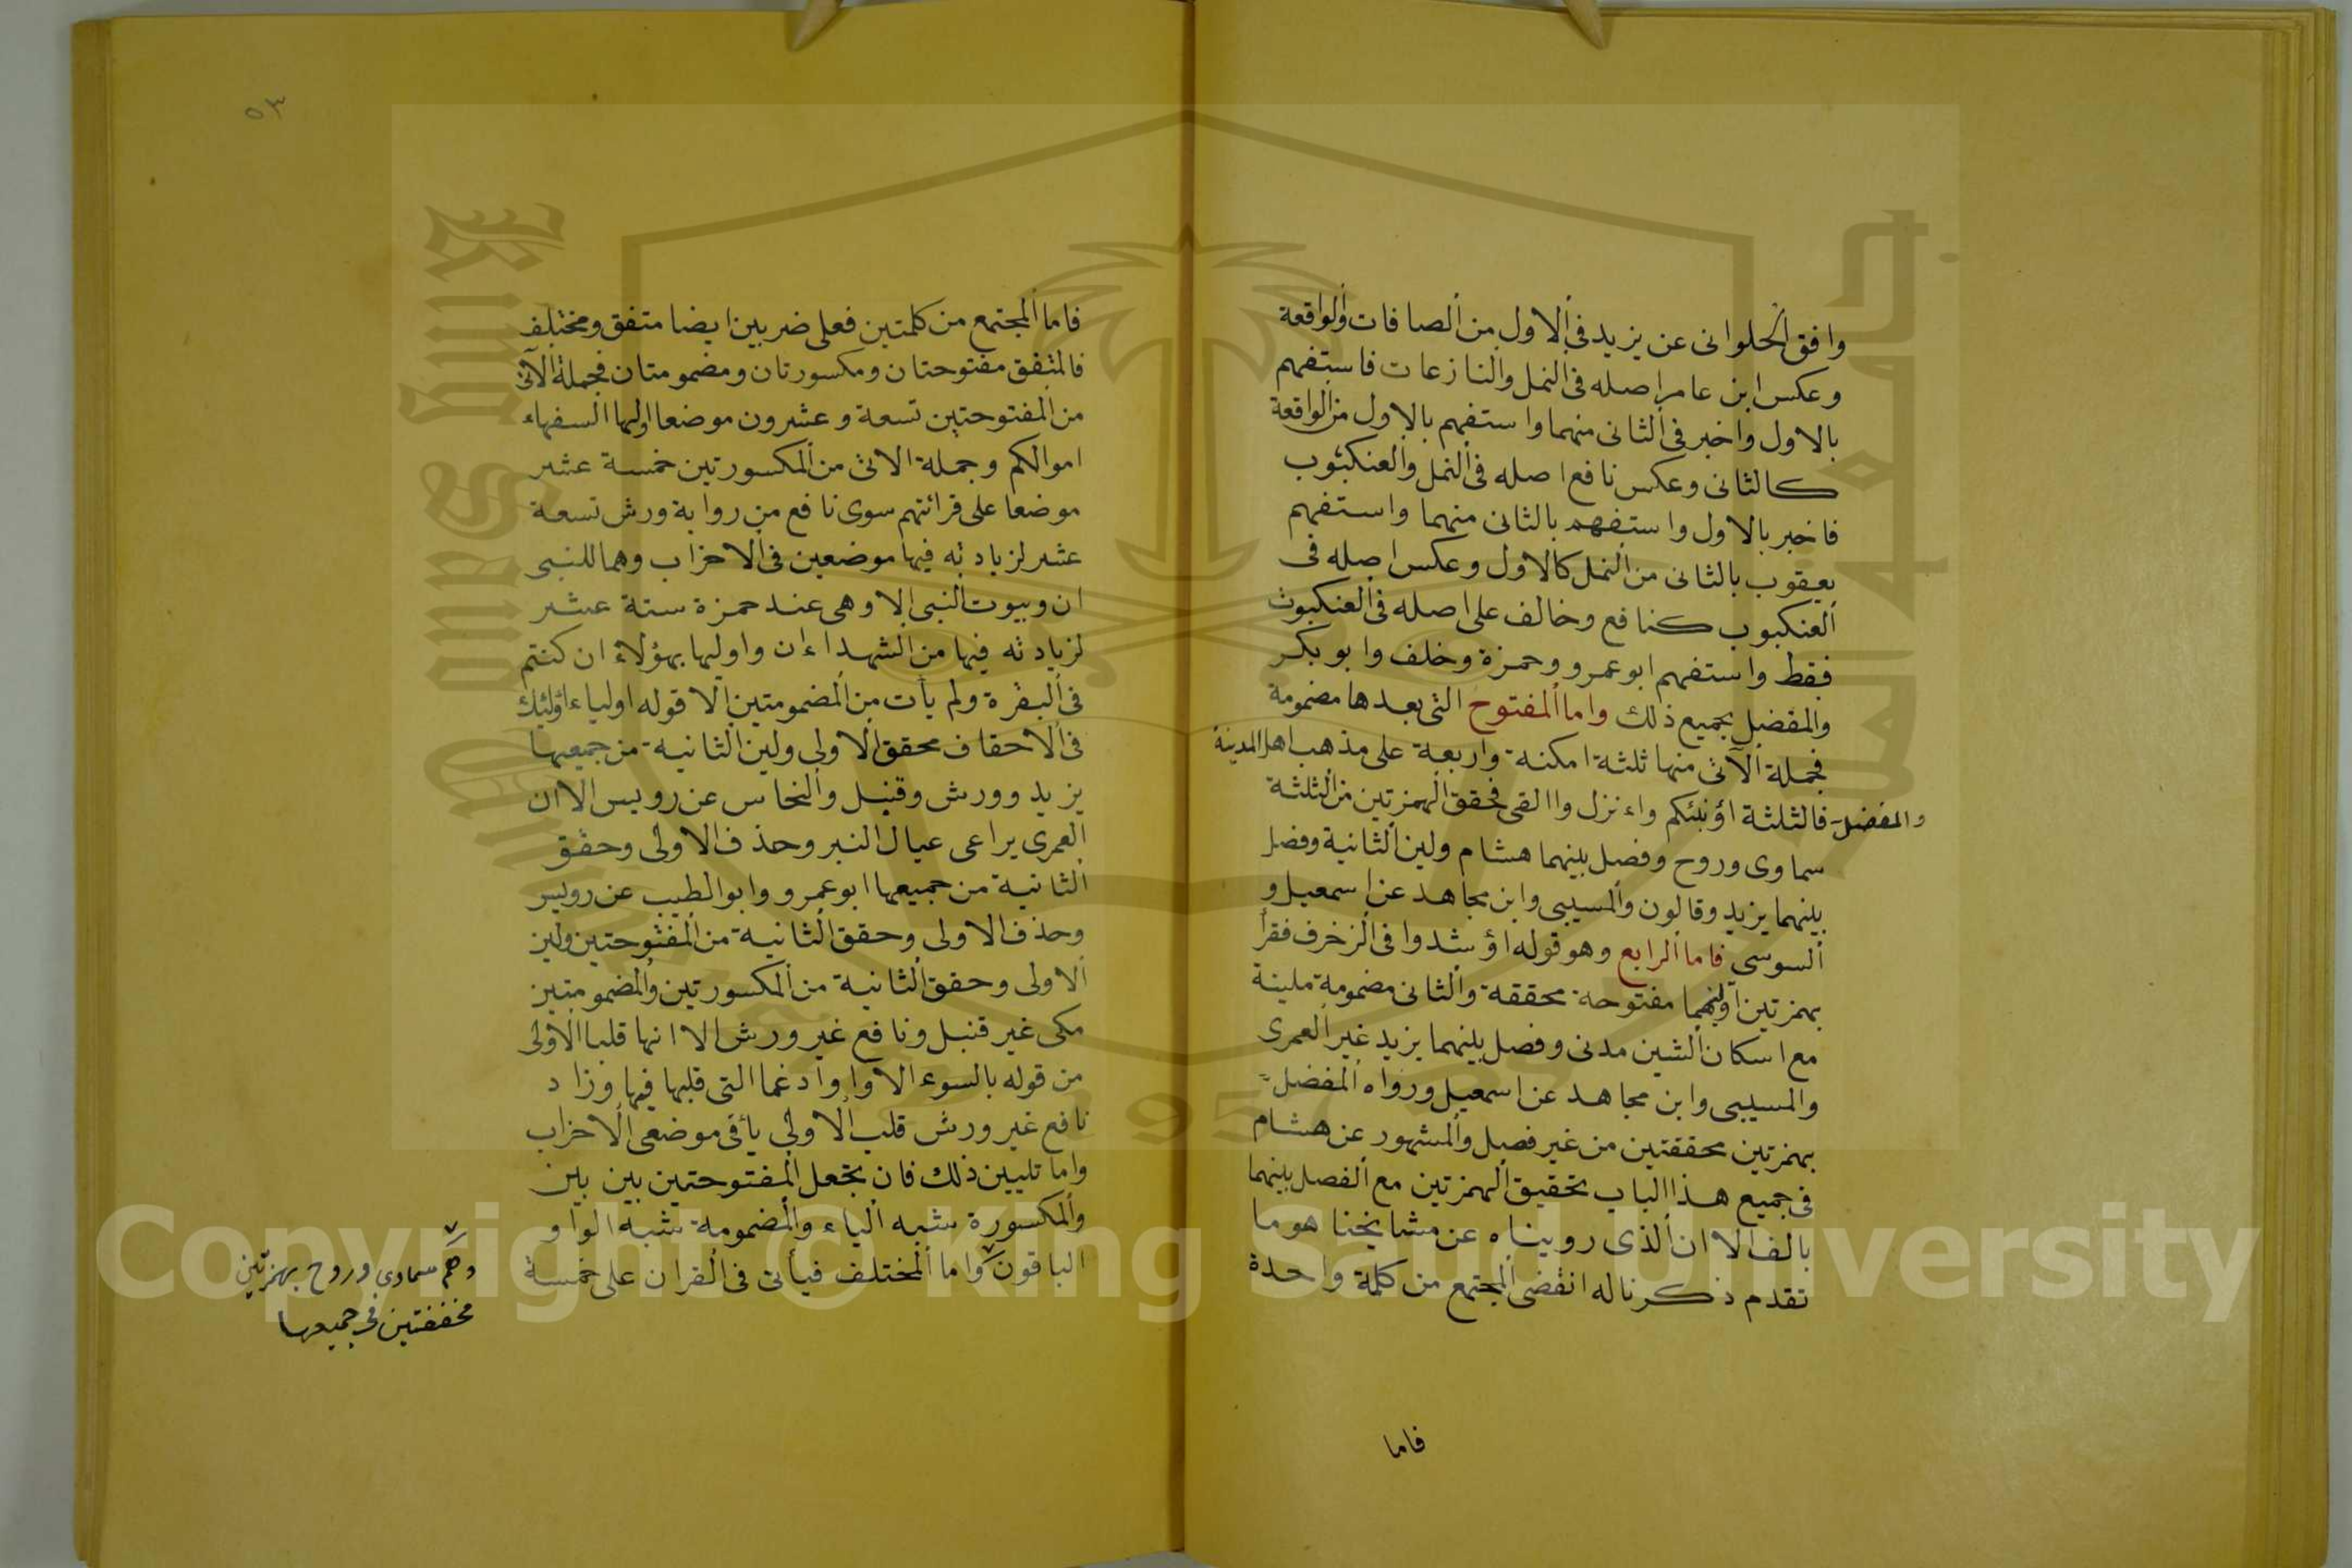 وافق الحلوانى عن يزيد فى الاول من الصافات والواقعة
وعكس ابن عامر اصله فى النمل والنازعات فاستفهم
بالاول واخبر فى الثانى منهما واستفهم بالاول من الواقعة
كالثانى وعكس نافع اصله فى النمل والعنكبوت
فاخبر بالاول واستفهم بالثانى منهما واستفهم
يعقوب بالثانى من النمل كالاول وعكس اصله فى
العنكبوب كنافع وخالف على اصله فى العنكبوت
فقط واستفهم ابو عمرو وحمزة وخلف وابو بكر
والمفضل بجميع ذلك واما المفتوح التى بعدها مضمومة
فجملة الآتى منها ثلثة امكنة واربعة على مذهب اهل المدينة
والمفضل فالثلثة اؤنبئكم واءنزل واالقى فحقق الهمزتين من الثلثة
سماوى وروح وفصل بينهما هشام ولين الثانية وفصل
بينهما يزيد وقالون والمسيبى وابن مجاهد عن اسمعيل و
السوسى فاما الرابع وهو قوله اؤشدوا فى الزخرف فقرأ
بهمزتين اوليهما مفتوحة محققة والثانى مضمومة ملينة
مع اسكان الشين مدنى وفصل بينهما يزيد غير العمرى
والمسيبى وابن مجاهد عن اسمعيل ورواه المفضل
بهمزتين محققتين من غير فصل والمشهور عن هشام
فى جميع هذا الباب تحقيق الهمزتين مع الفصل بينهما
بالف الا ان الذى رويناه عن مشايخنا هو ما
تقدم ذكرنا له انقضى المجتمع من كلمة واحدة
فاما
٥٣
فاما المجتمع من كلمتين فعلى ضربين ايضا متفق ومختلف
فالمتفق مفتوحتان ومكسورتان ومضمومتان فجملة الآتى
من المفتوحتين تسعة وعشرون موضعا اولها السفهاء
اموالكم وجملة الاتى من المكسورتين خمسة عشر
موضعا على قرائتهم سوى نافع من رواية ورش تسعة
عشر لزيادته فيها موضعين فى الاحزاب وهما للنبى
ان وبيوت النبى الا وهى عند حمزة ستة عشر
لزيادته فيها من الشهداء ان واوليها بهؤلاء ان كنتم
فى البقرة ولم يأت من المضمومتين الا قوله اولياء اولئك
فى الاحقاف محقق الاولى ولين الثانية من جميعها
يزيد وورش وقنبل والنخاس عن رويس الا ان
العمرى يراعى عيال النبر وحذف الاولى وحقق
الثانية من جميعها ابو عمرو وابو الطيب عن رويس
وحذف الاولى وحقق الثانية من المفتوحتين ولين
الاولى وحقق الثانية من المكسورتين والمضمومتين
مكى غير قنبل ونافع غير ورش الا انها قلبا الاولى
من قوله بالسوء الا واوا وادغما التى قلبها فيها وزاد
نافع غير ورش قلب الاولى يأ فى موضعى الاحزاب
واما تليين ذلك فان تجعل المفتوحتين بين بين
والمكسورة شبه الياء والمضمومة شبه الواو
الباقون واما المختلف فيأتى فى القران على خمسة
وهم سماوى وروح بهمزتين
مخففتين فى جميعها
Copyright © King Saud University
King Saud University
1957